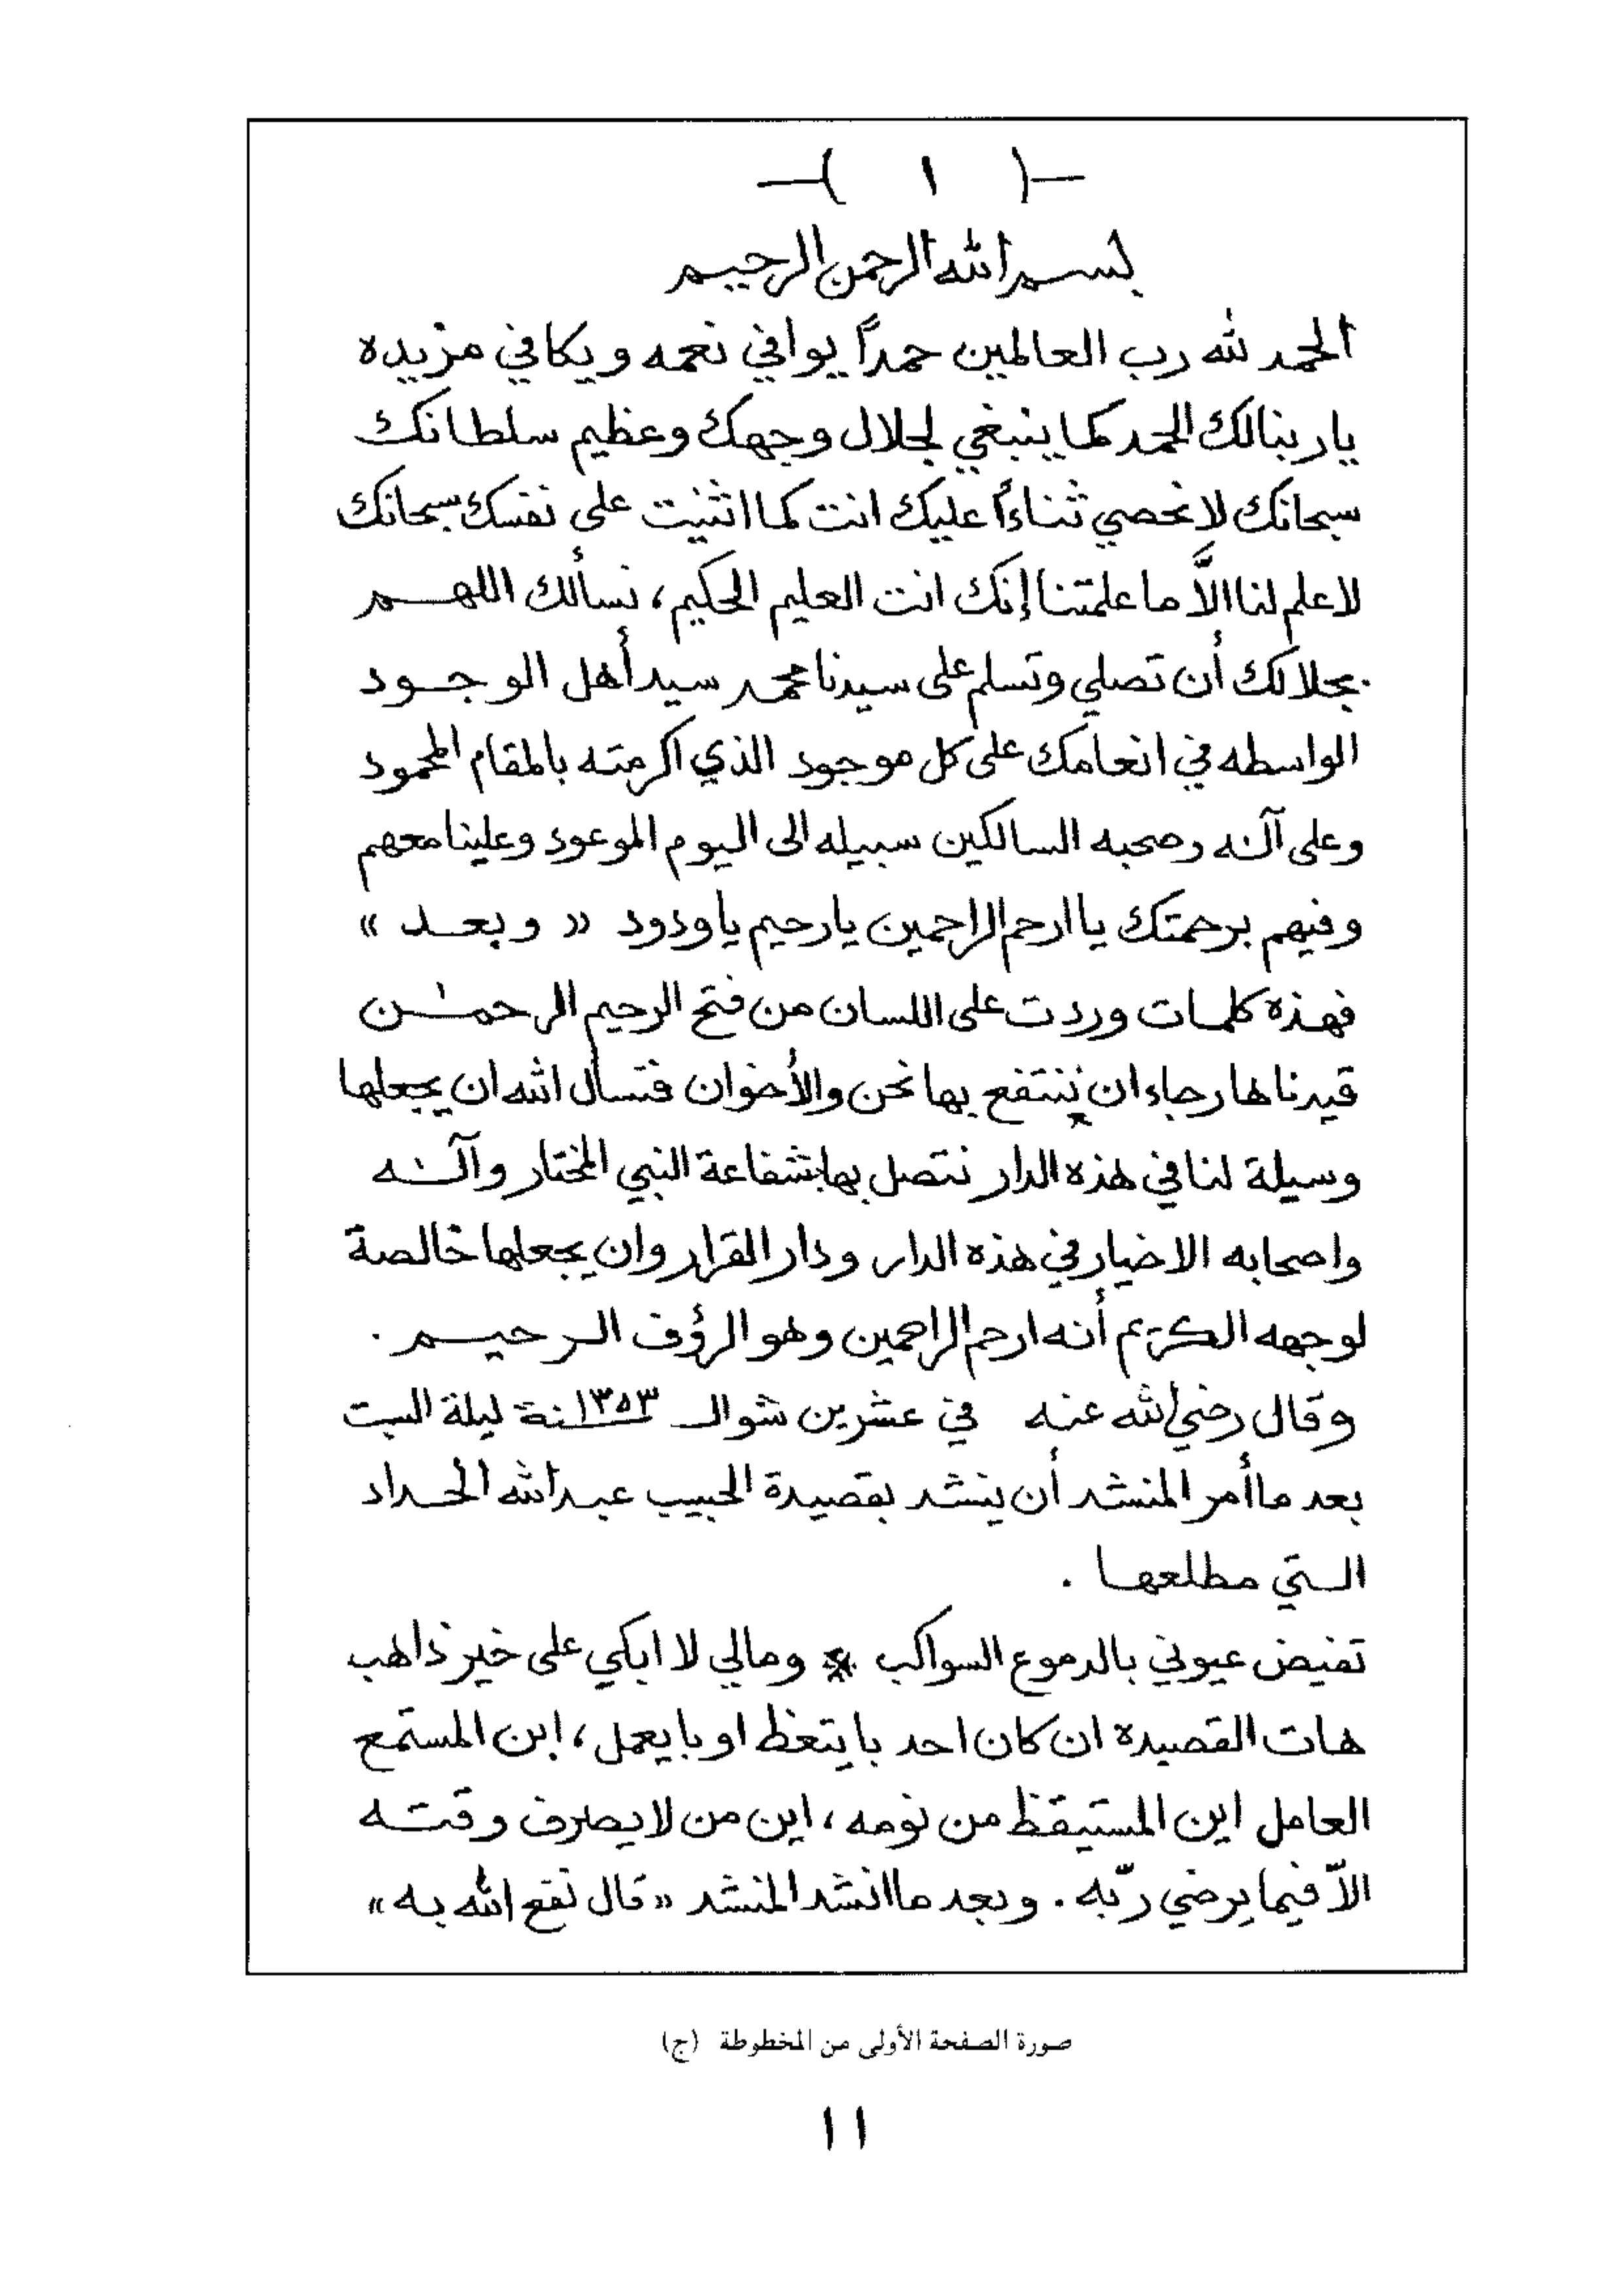 —( ١ )—
بسم الله الرحمن الرحيم
الحمد لله رب العالمين حمداً يوافي نعمه ويكافي مزيده
يا ربنا لك الحمد كما ينبغي لجلال وجهك وعظيم سلطانك
سبحانك لا نحصي ثناءاً عليك انت كما اثنيت على نفسك سبحانك
لا علم لنا الاَّ ما علمتنا إنك انت العليم الحكيم، نسألك اللهم
بجلالك أن تصلي وتسلم على سيدنا محمد سيد أهل الوجود
الواسطه في انعامك على كل موجود الذي اكرمته بالمقام المحمود
وعلى آله وصحبه السالكين سبيله الى اليوم الموعود وعلينا معهم
وفيهم برحمتك يا ارحم الراحمين يا رحيم يا ودود « وبعد »
فهذه كلمات وردت على اللسان من فتح الرحيم الرحمٰن
قيدناها رجاء ان ننتفع بها نحن والأخوان فنسأل الله ان يجعلها
وسيلة لنا في هذه الدار نتصل بها بشفاعة النبي المختار وآله
واصحابه الاخيار في هذه الدار ودار القرار وان يجعلها خالصة
لوجهه الكريم أنه ارحم الراحمين وهو الرؤف الرحيم .
وقال رضي الله عنه في عشرين شوال ١٣٥٣سنة ليلة السبت
بعد ما أمر المنشد أن ينشد بقصيدة الحبيب عبدالله الحداد
التي مطلعها .
تفيض عيوني بالدموع السواكب * ومالي لا ابكي على خير ذاهب
هات القصيده ان كان احد با يتعظ او با يعمل، اين المستمع
العامل اين المستيقظ من نومه، اين من لا يصرف وقته
الاّ فيما يرضي ربّه . وبعد ما انشد المنشد « قال نفع الله به »
صورة الصفحة الأولى من المخطوطة (ج)
١١